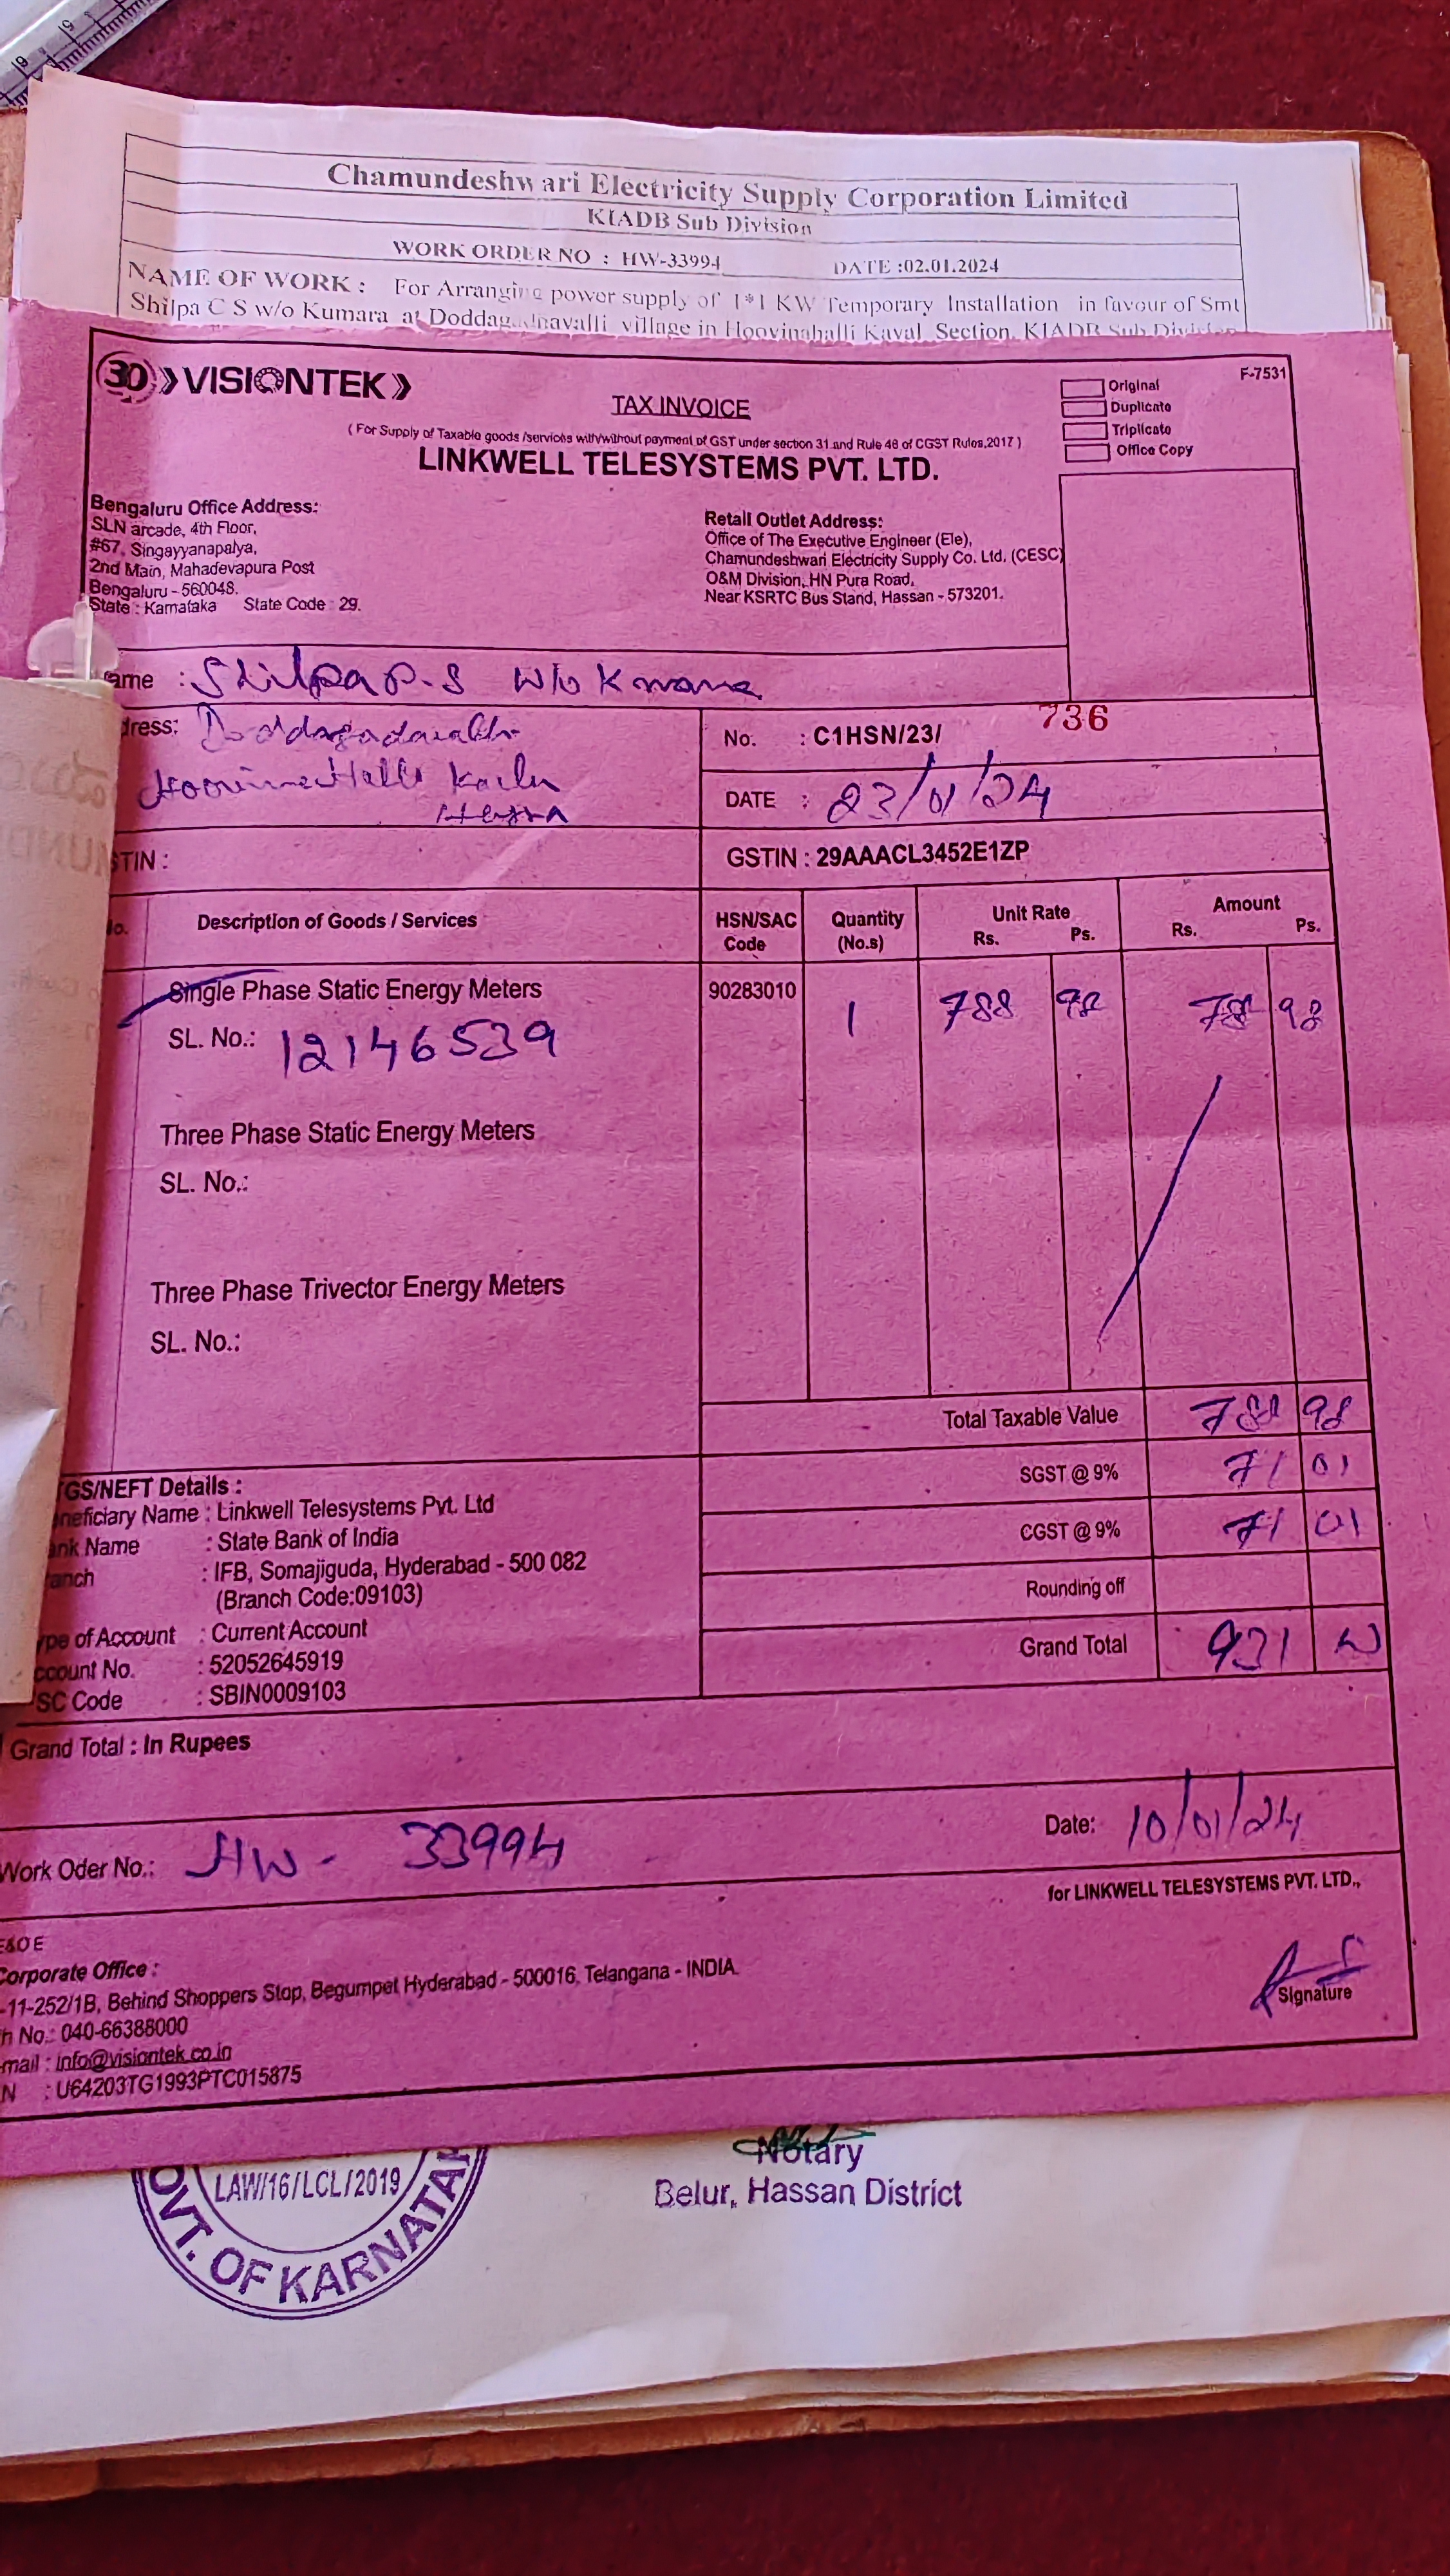 Chamundeshwari Electricity Supply Corporation Limited
KIADB Sub Division
WORK ORDER NO : HW-33994 DATE :02.01.2024
NAME OF WORK : For Arranging power supply of 1*1 KW Temporary Installation in favour of Smt
Shilpa C S w/o Kumara at village in Hoovinahalli Kaval Section, KIADB Sub Division
30 VISIONTEK
TAX INVOICE
F-7531
Original
Duplicate
Triplicate
Office Copy
( For Supply of Taxable goods /services with/without payment of GST under section 31 and Rule 46 of CGST Rules,2017 )
LINKWELL TELESYSTEMS PVT. LTD.
Bengaluru Office Address:
SLN arcade, 4th Floor,
#67, Singayyanapalya,
2nd Main, Mahadevapura Post
Bengaluru - 560048.
State : Karnataka State Code : 29.
Retail Outlet Address:
Office of The Executive Engineer (Ele),
Chamundeshwari Electricity Supply Co. Ltd, (CESC)
O&M Division, HN Pura Road,
Near KSRTC Bus Stand, Hassan - 573201.
ame : Shilpa w/o
dress:
No. : C1HSN/23/ 736
DATE : 23/01/24
STIN :
GSTIN : 29AAACL3452E1ZP
o. Description of Goods / Services HSN/SAC Code Quantity (No.s) Unit Rate Rs. Ps. Amount Rs. Ps.
Single Phase Static Energy Meters 90283010 1 788 98 98
SL. No.: 12146539
Three Phase Static Energy Meters
SL. No.:
Three Phase Trivector Energy Meters
SL. No.:
Total Taxable Value 788 98
SGST @ 9% 71 01
CGST @ 9% 71 01
Rounding off
Grand Total 931
GS/NEFT Details :
neficiary Name : Linkwell Telesystems Pvt. Ltd
ank Name : State Bank of India
anch : IFB, Somajiguda, Hyderabad - 500 082
(Branch Code:09103)
ype of Account : Current Account
ccount No. : 52052645919
SC Code : SBIN0009103
Grand Total : In Rupees
Work Oder No.: HW - 33994
Date: 10/01/24
for LINKWELL TELESYSTEMS PVT. LTD.,
Signature
E&OE
Corporate Office :
-11-252/1B, Behind Shoppers Stop, Begumpet Hyderabad - 500016, Telangana - INDIA.
h No.: 040-66388000
mail : info@visiontek.co.in
N : U64203TG1993PTC015875
LAW/16/LCL/2019
OVT. OF KARNATAK
Notary
Belur, Hassan District